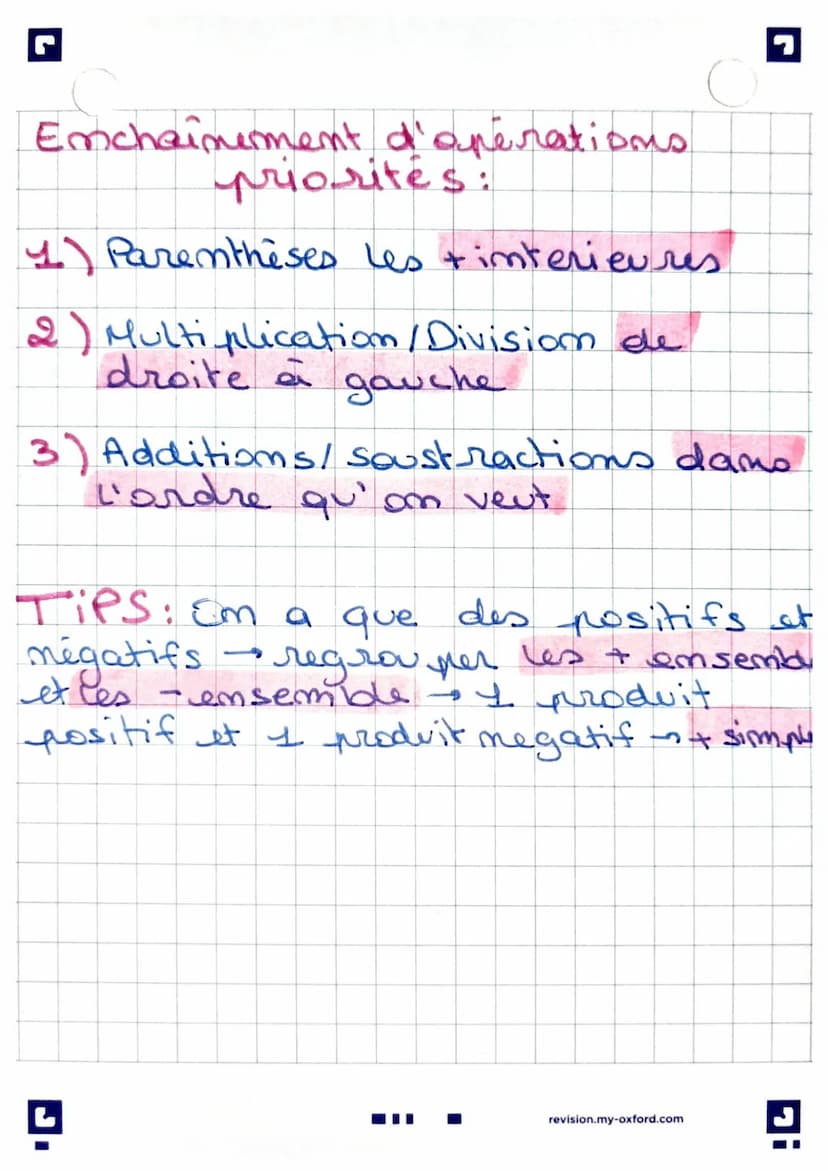 Enchaînement d'opérations
priorités :
1) Parenthèses les + interieures
2) Multiplication/Division de
droite à gauche
3) Additions/soustractions dans
l'ordre qu'on veut
TIPS : On a que des positifs et
négatifs → regrouper les + ensembl
et les - ensemble → 1 produit
positif et 1 produit negatif → + simple
revision.my-oxford.com